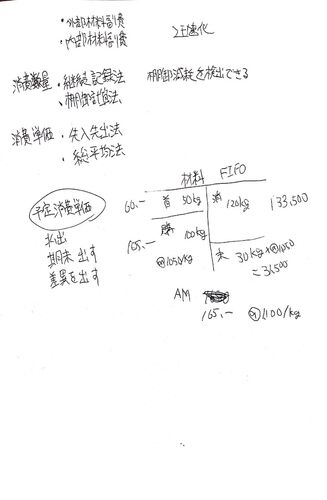 ・外部材料副費
・内部材料副費
正速化
消費数量 ・継続記録法 棚卸減耗を検出できる
・棚卸計算法
消費単価 ・先入先出法
・総平均法
材料 FIFO
予定消費単価
払出
期末出す
差異を出す
60.- 首 50kg 消 120kg 133,500
購 100kg
105.-
@1050/kg
末 30kg×@1050
=31,500
AM
165.- @1100/kg